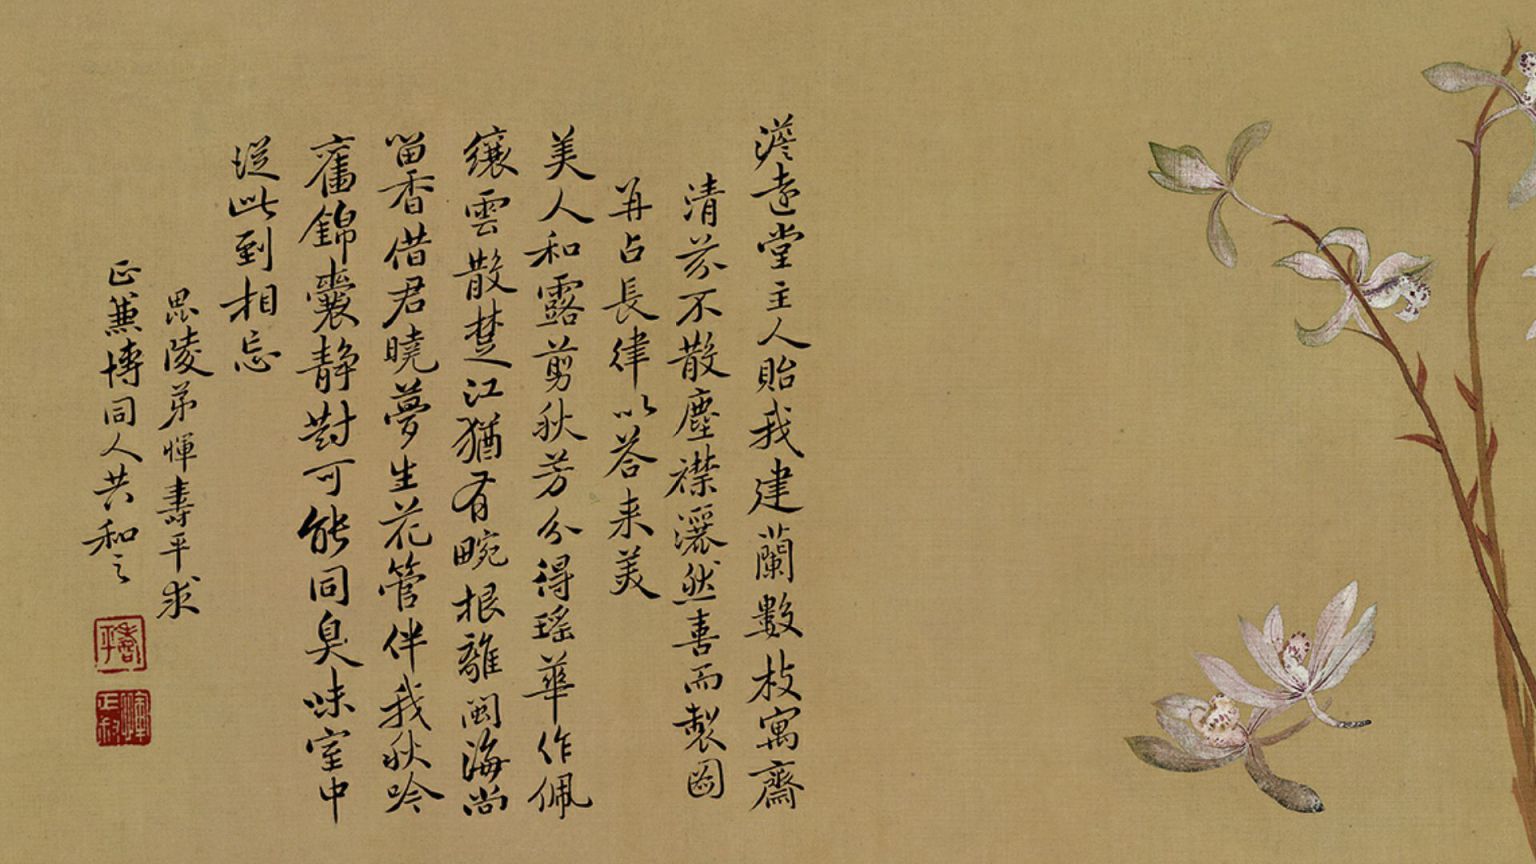 澹遠堂主人貽我建蘭數枝寓齋
清芬不散塵襟灑然喜而製圖
并占長律以答来美
美人和露剪秋芳分得瑤華作佩
纕雲散楚江猶有畹根離閩海尚
留香借君曉夢生花管伴我秋吟
舊錦囊静對可能同臭味室中
從此到相忘
毘陵弟惲壽平求
正蕙博同人共和之
壽平
惲正叔